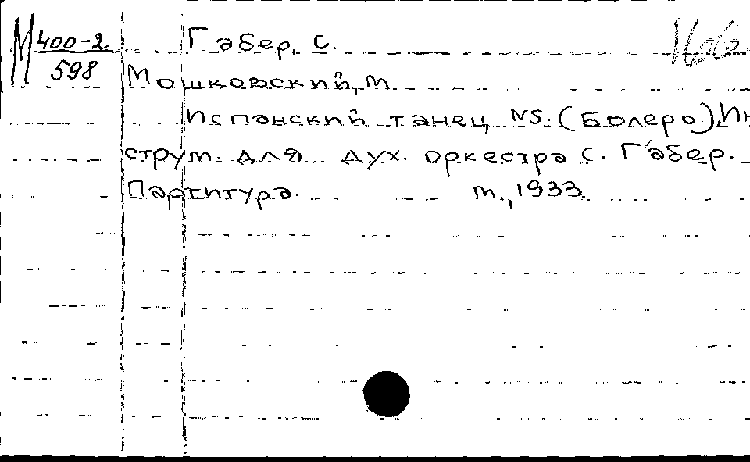 М 400-2. Габер, С.
598
Мошковский, М.
Испанский танец №5. (Болеро). Ин
струм. для дух. оркестра С. Габер.
Партитура. М., 1933.